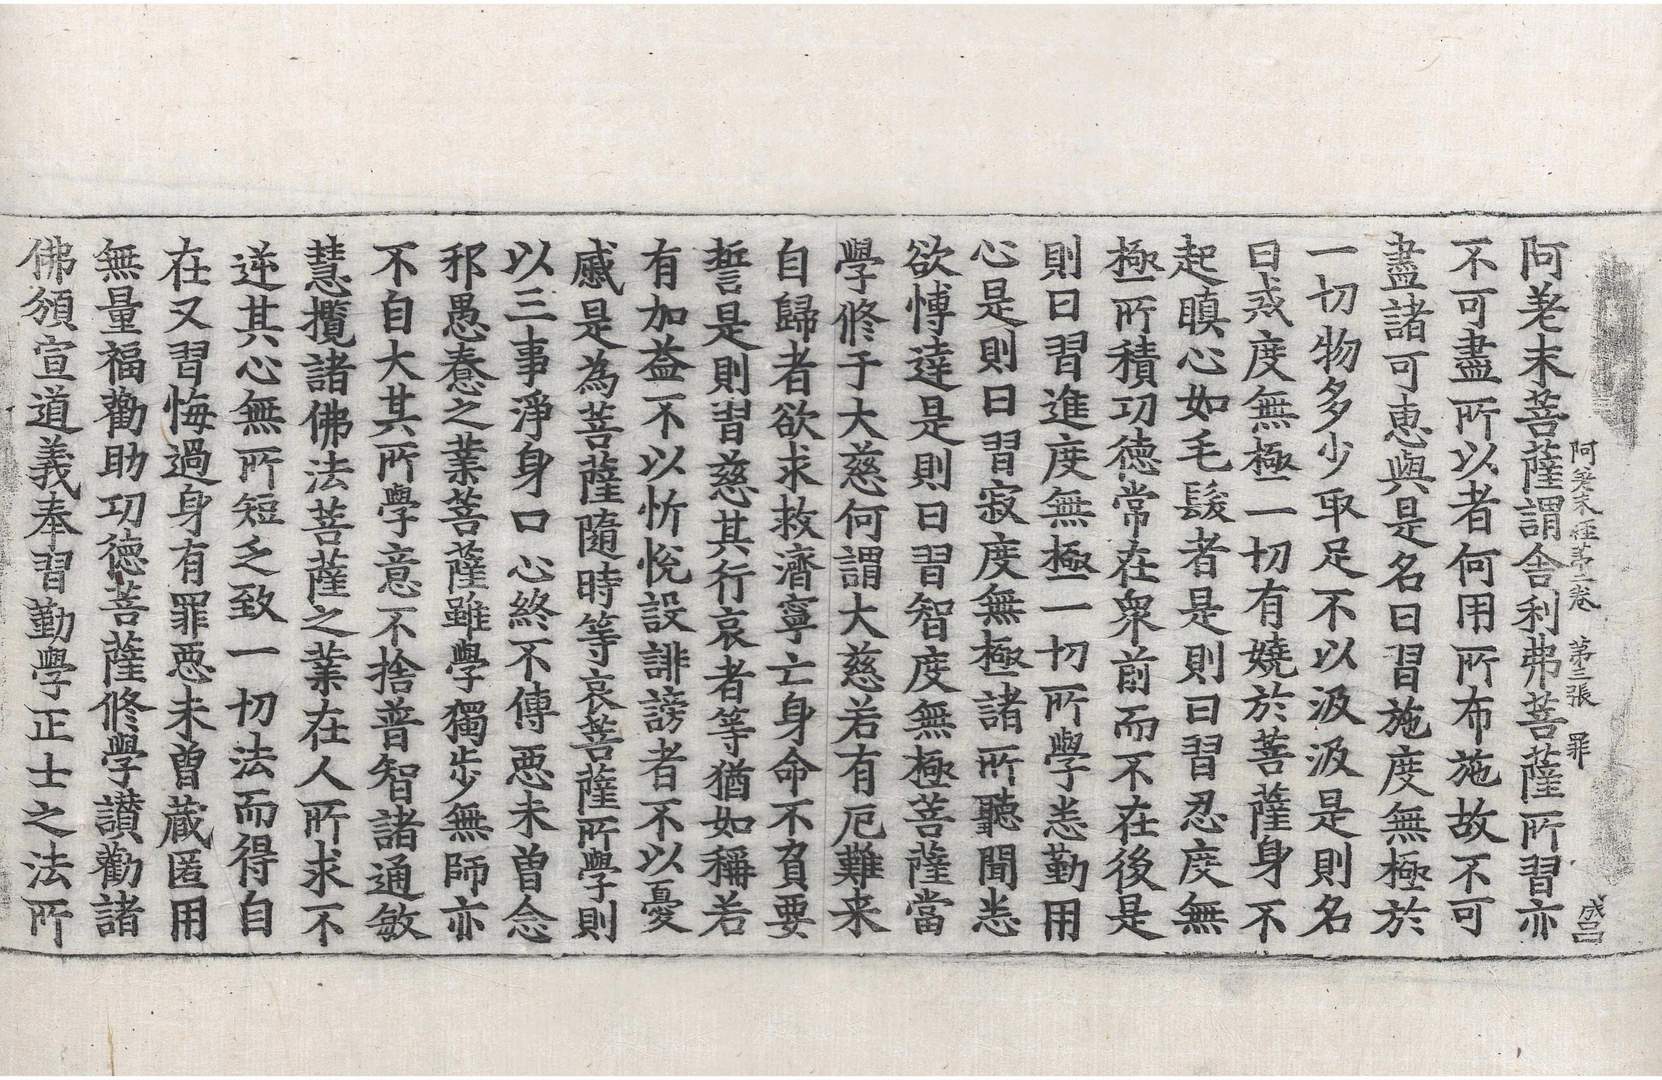 阿差末經第二卷　第三張　罪　成呂
阿差末菩薩謂舍利弗菩薩所習亦
不可盡所以者何用所布施故不可
盡諸可惠與是名曰習施度無極於
一切物多少取足不以汲汲是則名
曰戒度無極一切有嬈於菩薩身不
起瞋心如毛髮者是則曰習忍度無
極所積功德常在衆前而不在後是
則曰習進度無極一切所學悉勤用
心是則曰習寂度無極諸所聽聞悉
欲博達是則曰習智度無極菩薩當
學修于大慈何謂大慈若有厄難来
自歸者欲求救濟寧亡身命不負要
誓是則習慈其行哀者等猶如稱若
有加益不以忻恱設誹謗者不以憂
慼是為菩薩隨時等哀菩薩所學則
以三事淨身口心終不傳惡未曽念
邪愚惷之業菩薩雖學獨步無師亦
不自大其所學意不捨普智諸通敏
慧攬諸佛法菩薩之業在人所求不
逆其心無所短乏致一切法而得自
在又習悔過身有罪惡未曽蔵匿用
無量福勸助功德菩薩修學讃勸諸
佛頒宣道義奉習勤學正士之法所